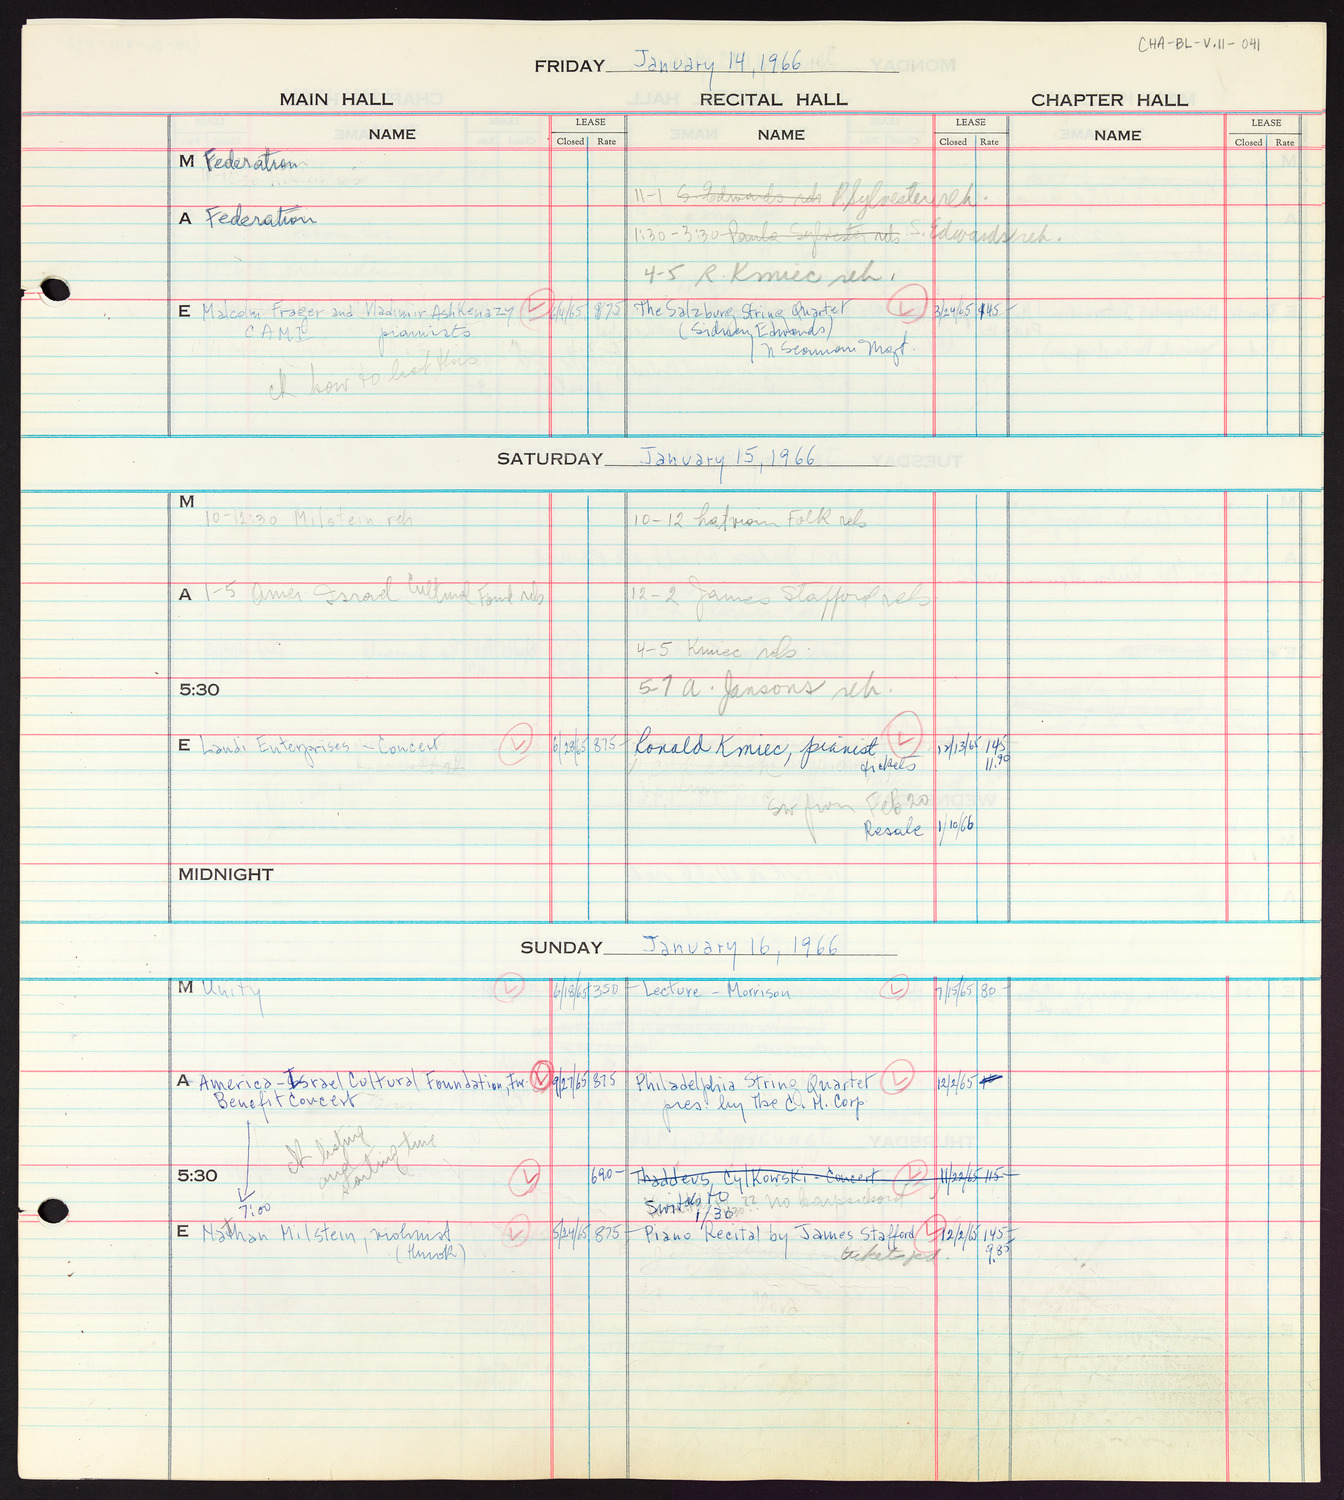 CHA-BL-V.11-041
FRIDAY January 14, 1966
MAIN HALL RECITAL HALL CHAPTER HALL
NAME LEASE Closed Rate NAME LEASE Closed Rate NAME LEASE Closed Rate
M Federation
11-1 S. Edwards reh P. Sylvester reh.
A Federation
1:30-3:30 Paula Sylvester reh. S. Edwards reh.
4-5 R. Kmiec reh.
E Malcolm Frager and Vladimir Ashkenazy 6/4/65 875 The Salzburg String Quartet 3/24/65 145-
CAMI pianists (Sidney Edwards)
N Seaman Mgt.
ck how to list this
SATURDAY January 15, 1966
M
10-12:30 Milstein reh 10-12 Folk reh
A 1-5 Amer Israel Cultural Found reh 12-2 James Stafford reh
4-5 Kmiec reh.
5:30 5-7 A. Jansons reh.
E Landi Enterprises - Concert 6/23/65 875- Ronald Kmiec, pianist 12/13/65 145
tickets 11.90
sw from Feb 20
Resale 1/10/66
MIDNIGHT
SUNDAY January 16, 1966
M Unity 6/18/65 350- Lecture - Morrison 7/15/65 80-
A America-Israel Cultural Foundation, Inc. 9/27/65 875 Philadelphia String Quartet 12/2/65
Benefit Concert pres. by The C. M. Corp
ck listing
and
starting time
5:30 690- Thaddeus Cylkowski - Concert 11/22/65 115-
Switch to ?? No harpsichord
7:00 1/30
E Nathan Milstein, violinist 5/24/65 875- Piano Recital by James Stafford 12/2/65 145-
(Hurok) tickets pd. 9.85